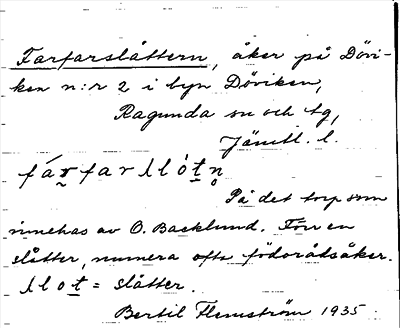 Farfarslåttern, åker på Dövi-
ken n:r 2 i byn Döviken,
Ragunda sn och tg,
Jämtl. l.
fárfarllòtn̥
På det torp som
innehas av O. Backlund. Förr en
slåtter, numera ofta födorådsåker.
llot = slåtter.
Bertil Flemström 1935